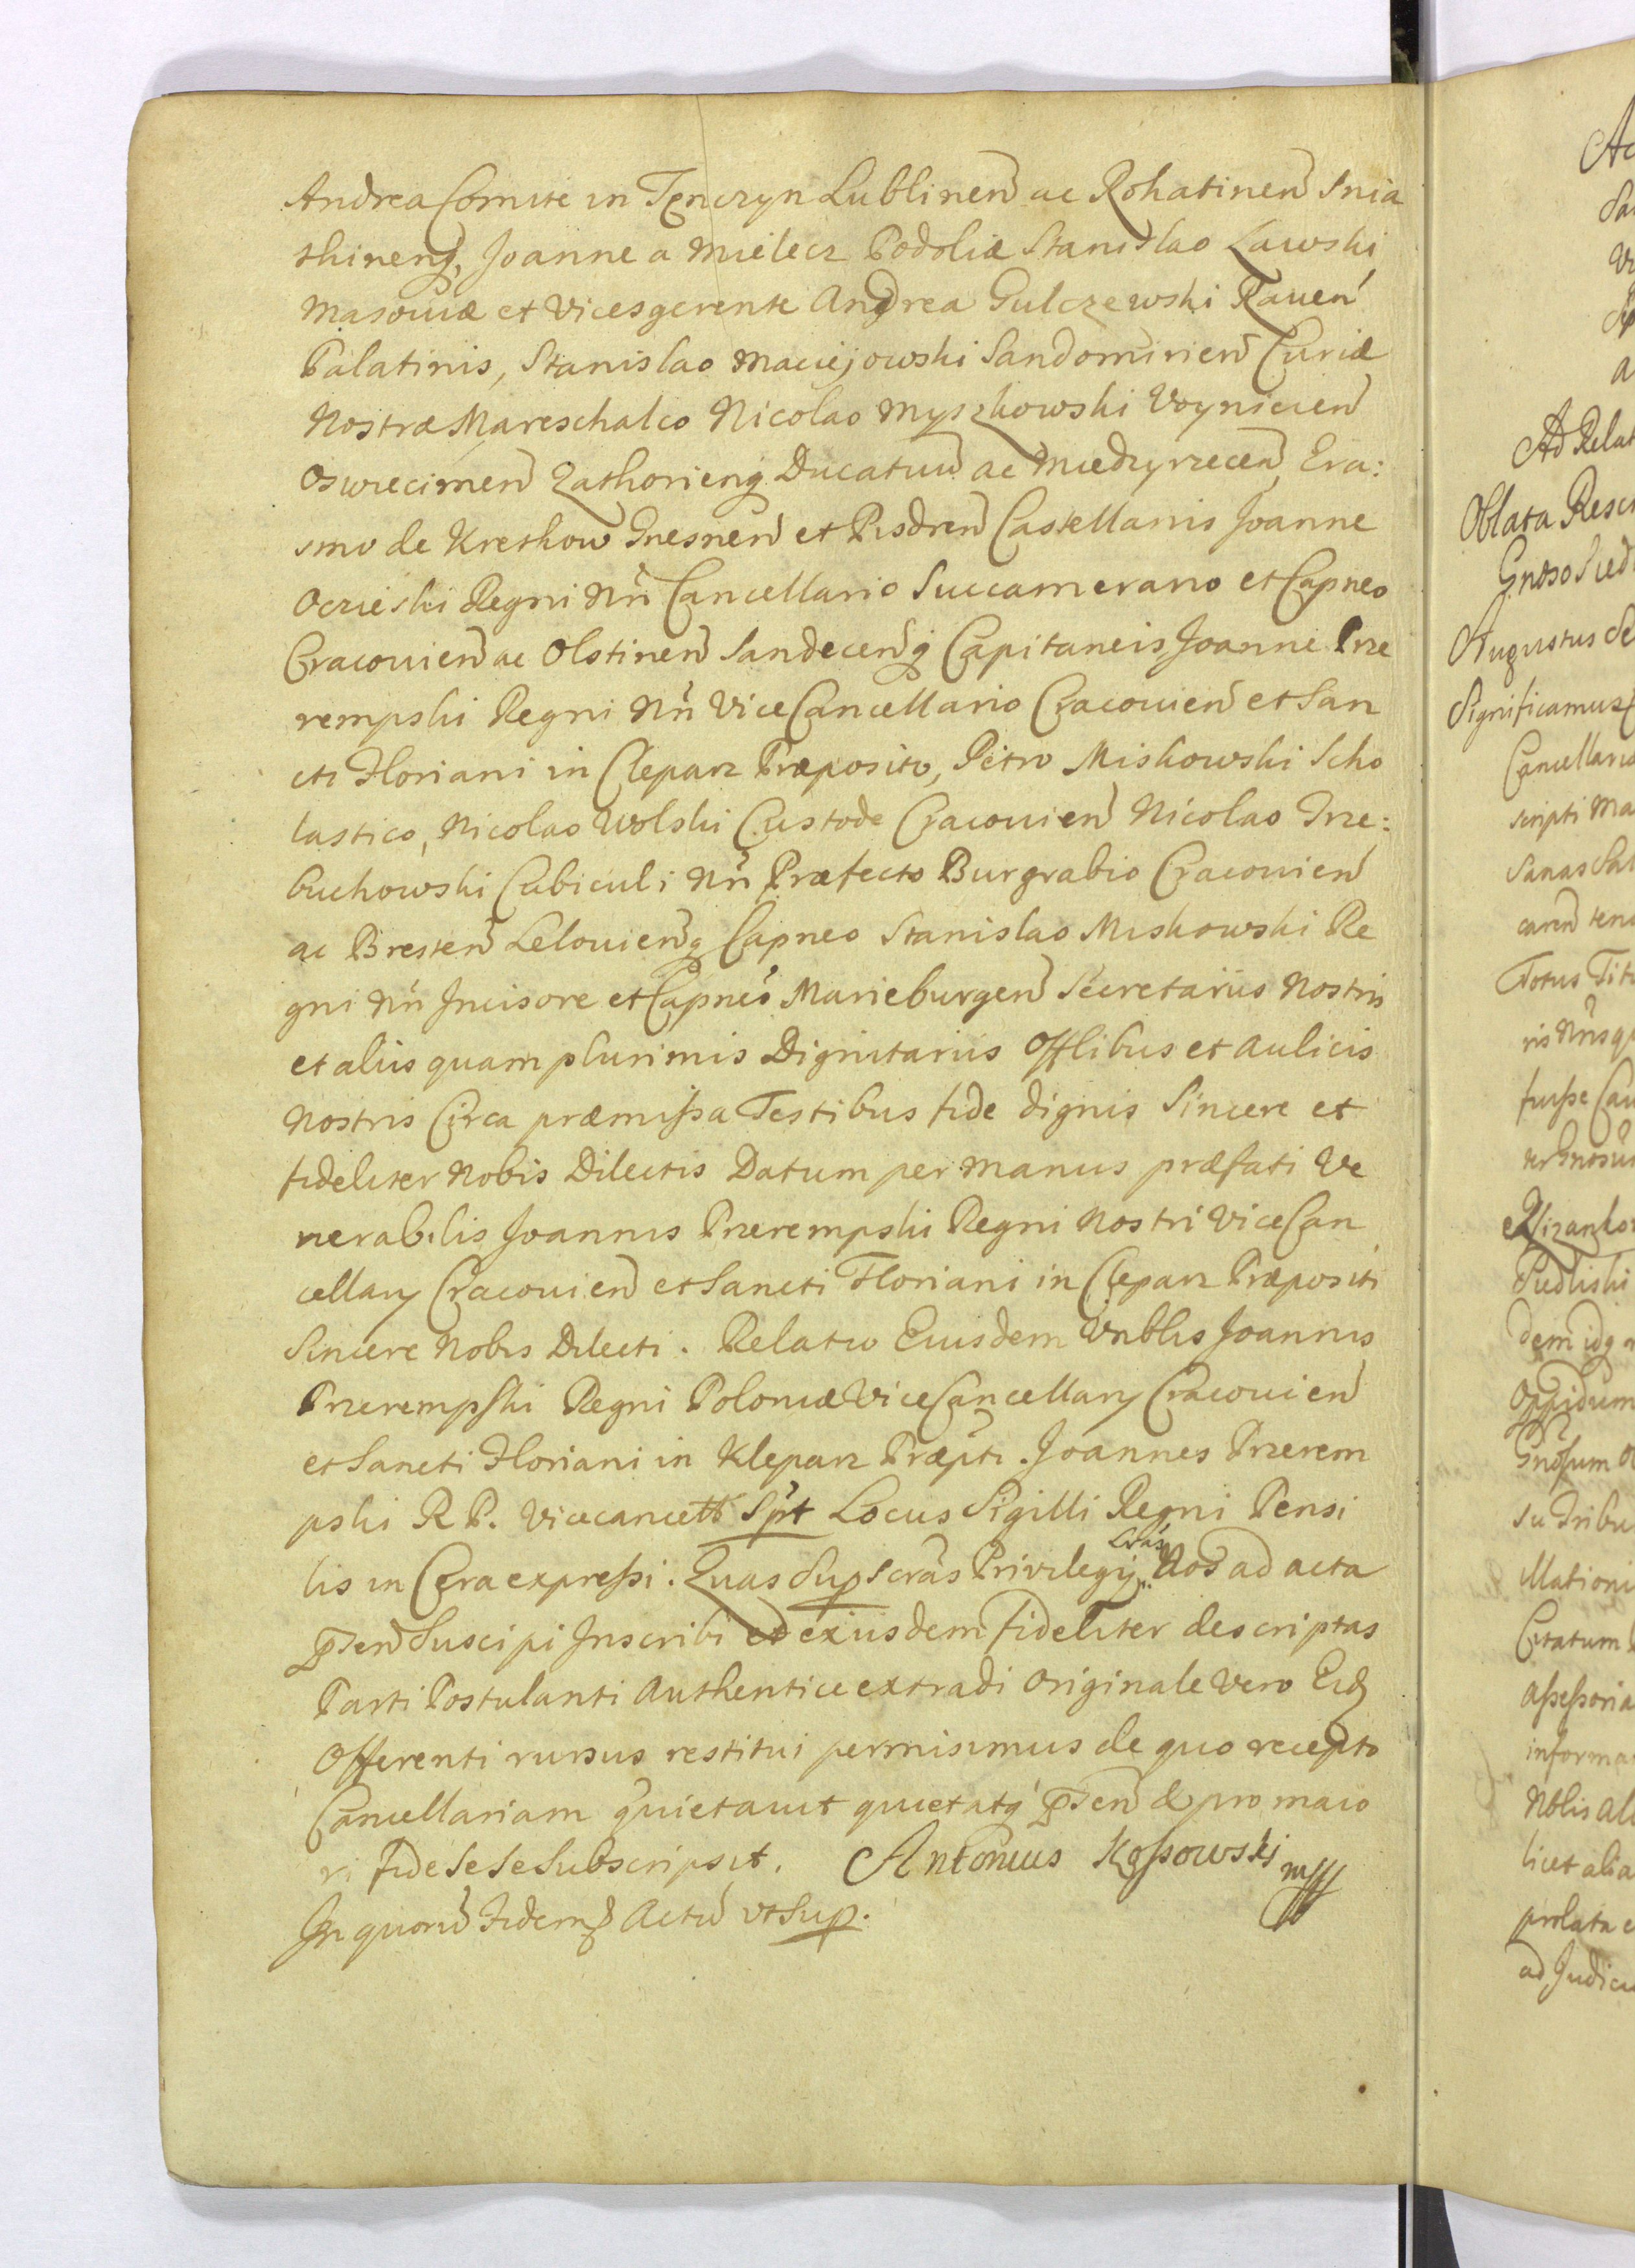 Andrea Comite in Tenczyn Lublinen ac Rohatinen Snia
thinenq, Joanne a Mielecz Podoliæ Stanislao Lawski
Masoviæ et Vicesgerente Andrea Sulczewski Raven
Palatinis, Stanislao Maciejowski Sandomirien Curiæ
Nostræ Mareschalco Nicolao Myszkowski Voynicien
Oswiecimen Zathorienq Ducatuu ac Miedzyrzecen, Era:
smo de Krethow Gnesnen et Pisdren Castellanis Joanne
Oczieski Regni Nri Cancellario Succamerano et Capneo
Cracovien ac Olstinen Sandecenq Capitaneis Joanne Prze
rempski Regni Nri ViceCancellario Cracovien et San
cti Floriani in Clepars Præposito, Petro Miskowski Scho
lastico, Nicolao Wolski Custode Cracovien Nicolao Trze:
buchowski Cubiculi Nri Præfecto Burgrabio Cracovien
ac Bresten Lelovienq Capneo Stanislao Miskowski Re
gni Nri Incisore et Capneo Marieburgen Secretariis Nostris
et aliis quam plurimis Dignitariis Offlibus et Aulicis
Nostris Circa præmissa Testibus fide dignis Sincere et
fideliter Nobis Dilectis Datum per manus præfati Ve
nerabilis Joannis Przerempski Regni Nostri ViceCan
cellary Cracovien et Sancti Floriani in Clepars Præpositi
Sincere Nobis Dilecti. Relatio Eiusdem Vnblis Joannis
Przerempski Regni Poloniæ ViceCancellary Cracovien
et Sancti Floriani in Klepars Præpti. Joannes Przerem
pski R P. Vicecancell Spt Locus Sigilli Regni Pensi
lis in Cera expressi. Quas Sup scras Privilegij Lras Nos ad acta
pnten Suscipi Inscribi et exiusdem fideliter descriptas
Parti Postulanti Authentice extradi Originale vero Eid
Offerenti rursus restitui permisimus de quo recepto
Cancellariam quietavit quietatq pnten & pro maio
ri fide Se Se Subscripsit. Antonius Kossowski mpp
In quoru fidem Actu ut Sup.
Ad Relat
Oblata Rescr
Augustus Se
Significamus
Cancellario
scripti Ma
Totus Tit
Oppidum
Citatum
Assessoria
informa
licet alia
ad Judici